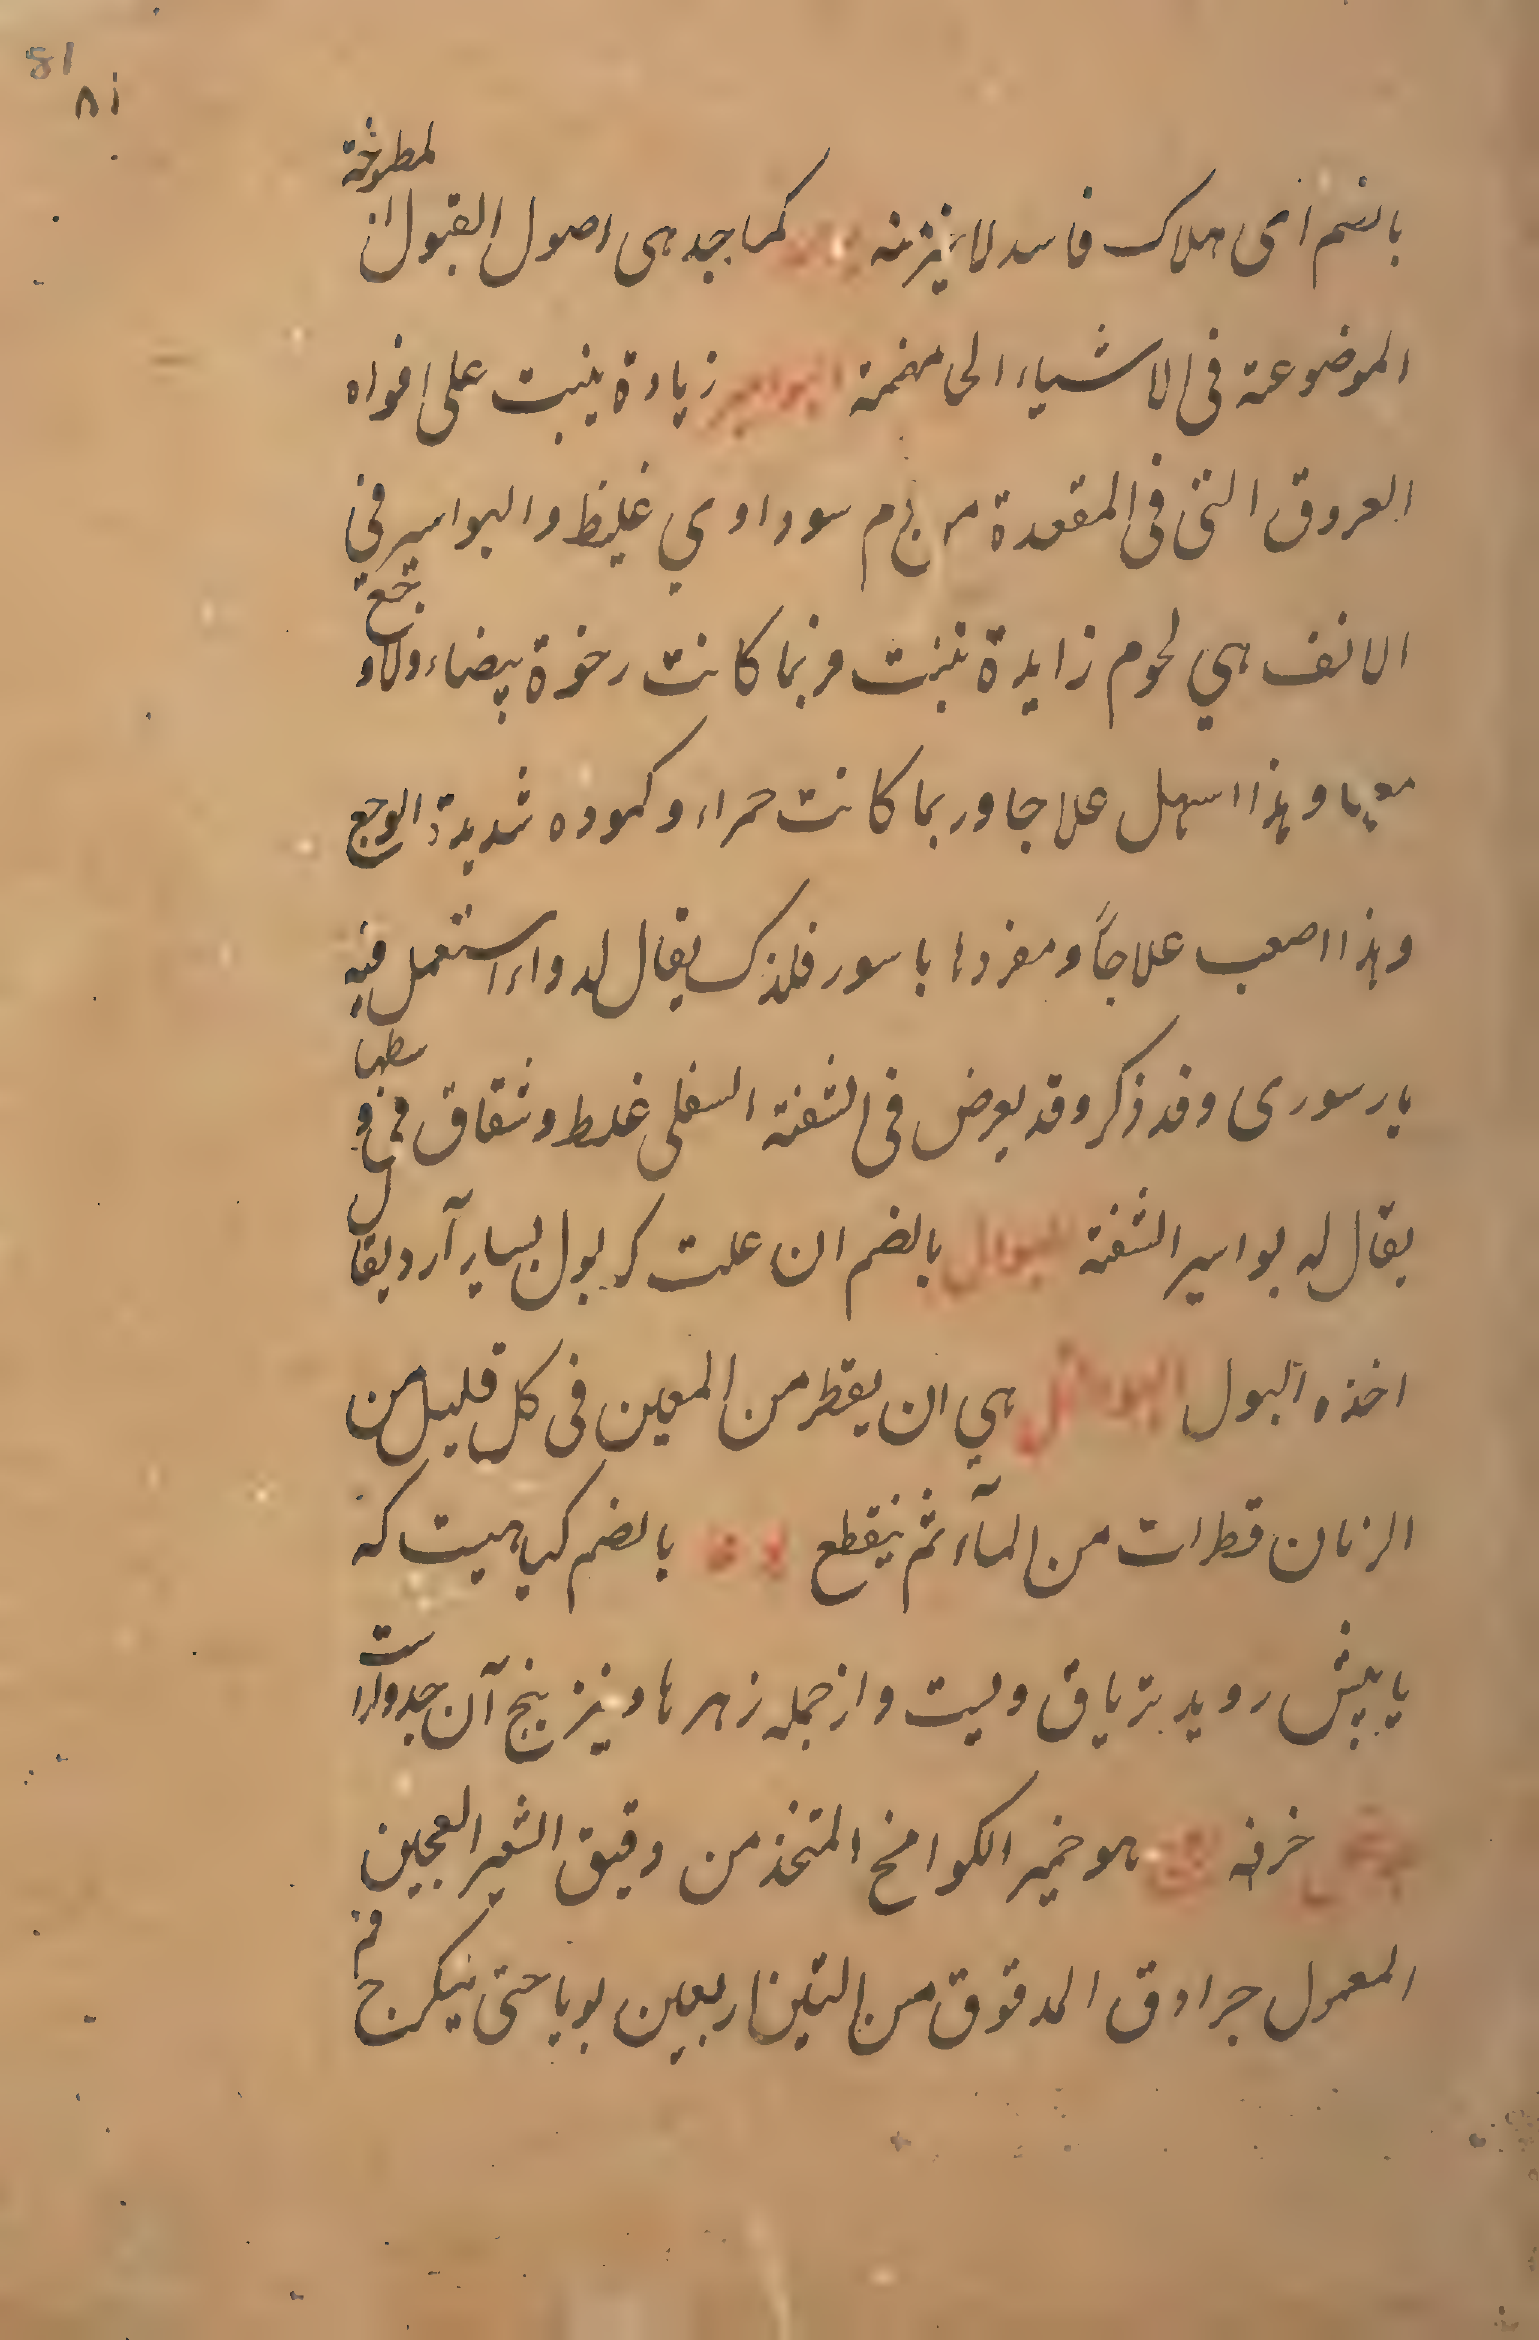 81
٨١
بالضم ای هلاک فاسد لا خیر فیه کما جد هی اصول البقول المطبوخة
الموضوعة فی الاشیاء الی مهضمة البواسیر زیادة ینبت علی افواه
العروق التی فی المقعدة من دم سوداوی غلیظ والبواسیر فی
الانف هی لحوم زایدة تنبت فربما کانت رخوة بیضاء ولا وجع
معها وهذا اسهل علاجا وربما کانت حمراء وکموده شدیدة الوجع
وهذا اصعب علاجاً ومفردها باسور فلذلک یقال لدواء استعمل فیه
بارسوری وقد ذکر وقد یعرض فی الشفة السفلی غلظ وشقاق فی وسطها
یقال له بواسیر الشفة البوال بالضم ان علت که بول بسیار آرد یقال
اخذه البول هی ان یقطر من العین فی کل قلیل من
الزمان قطرات من المآء ثم ینقطع بالضم کیاهیست که
با بیش روید تریاق ویست و از جمله زهرها و نیز بیخ آن جدوارست
خرفه هو خمیر الکوامخ المتخذ من دقیق الشعیر العجین
المعمول جرادق المدفوق من التین اربعین یوما حتی یتکرج